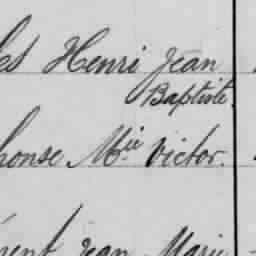 es Henri Jean
Baptiste.
honse Mie Victor.
ent Jean Marie